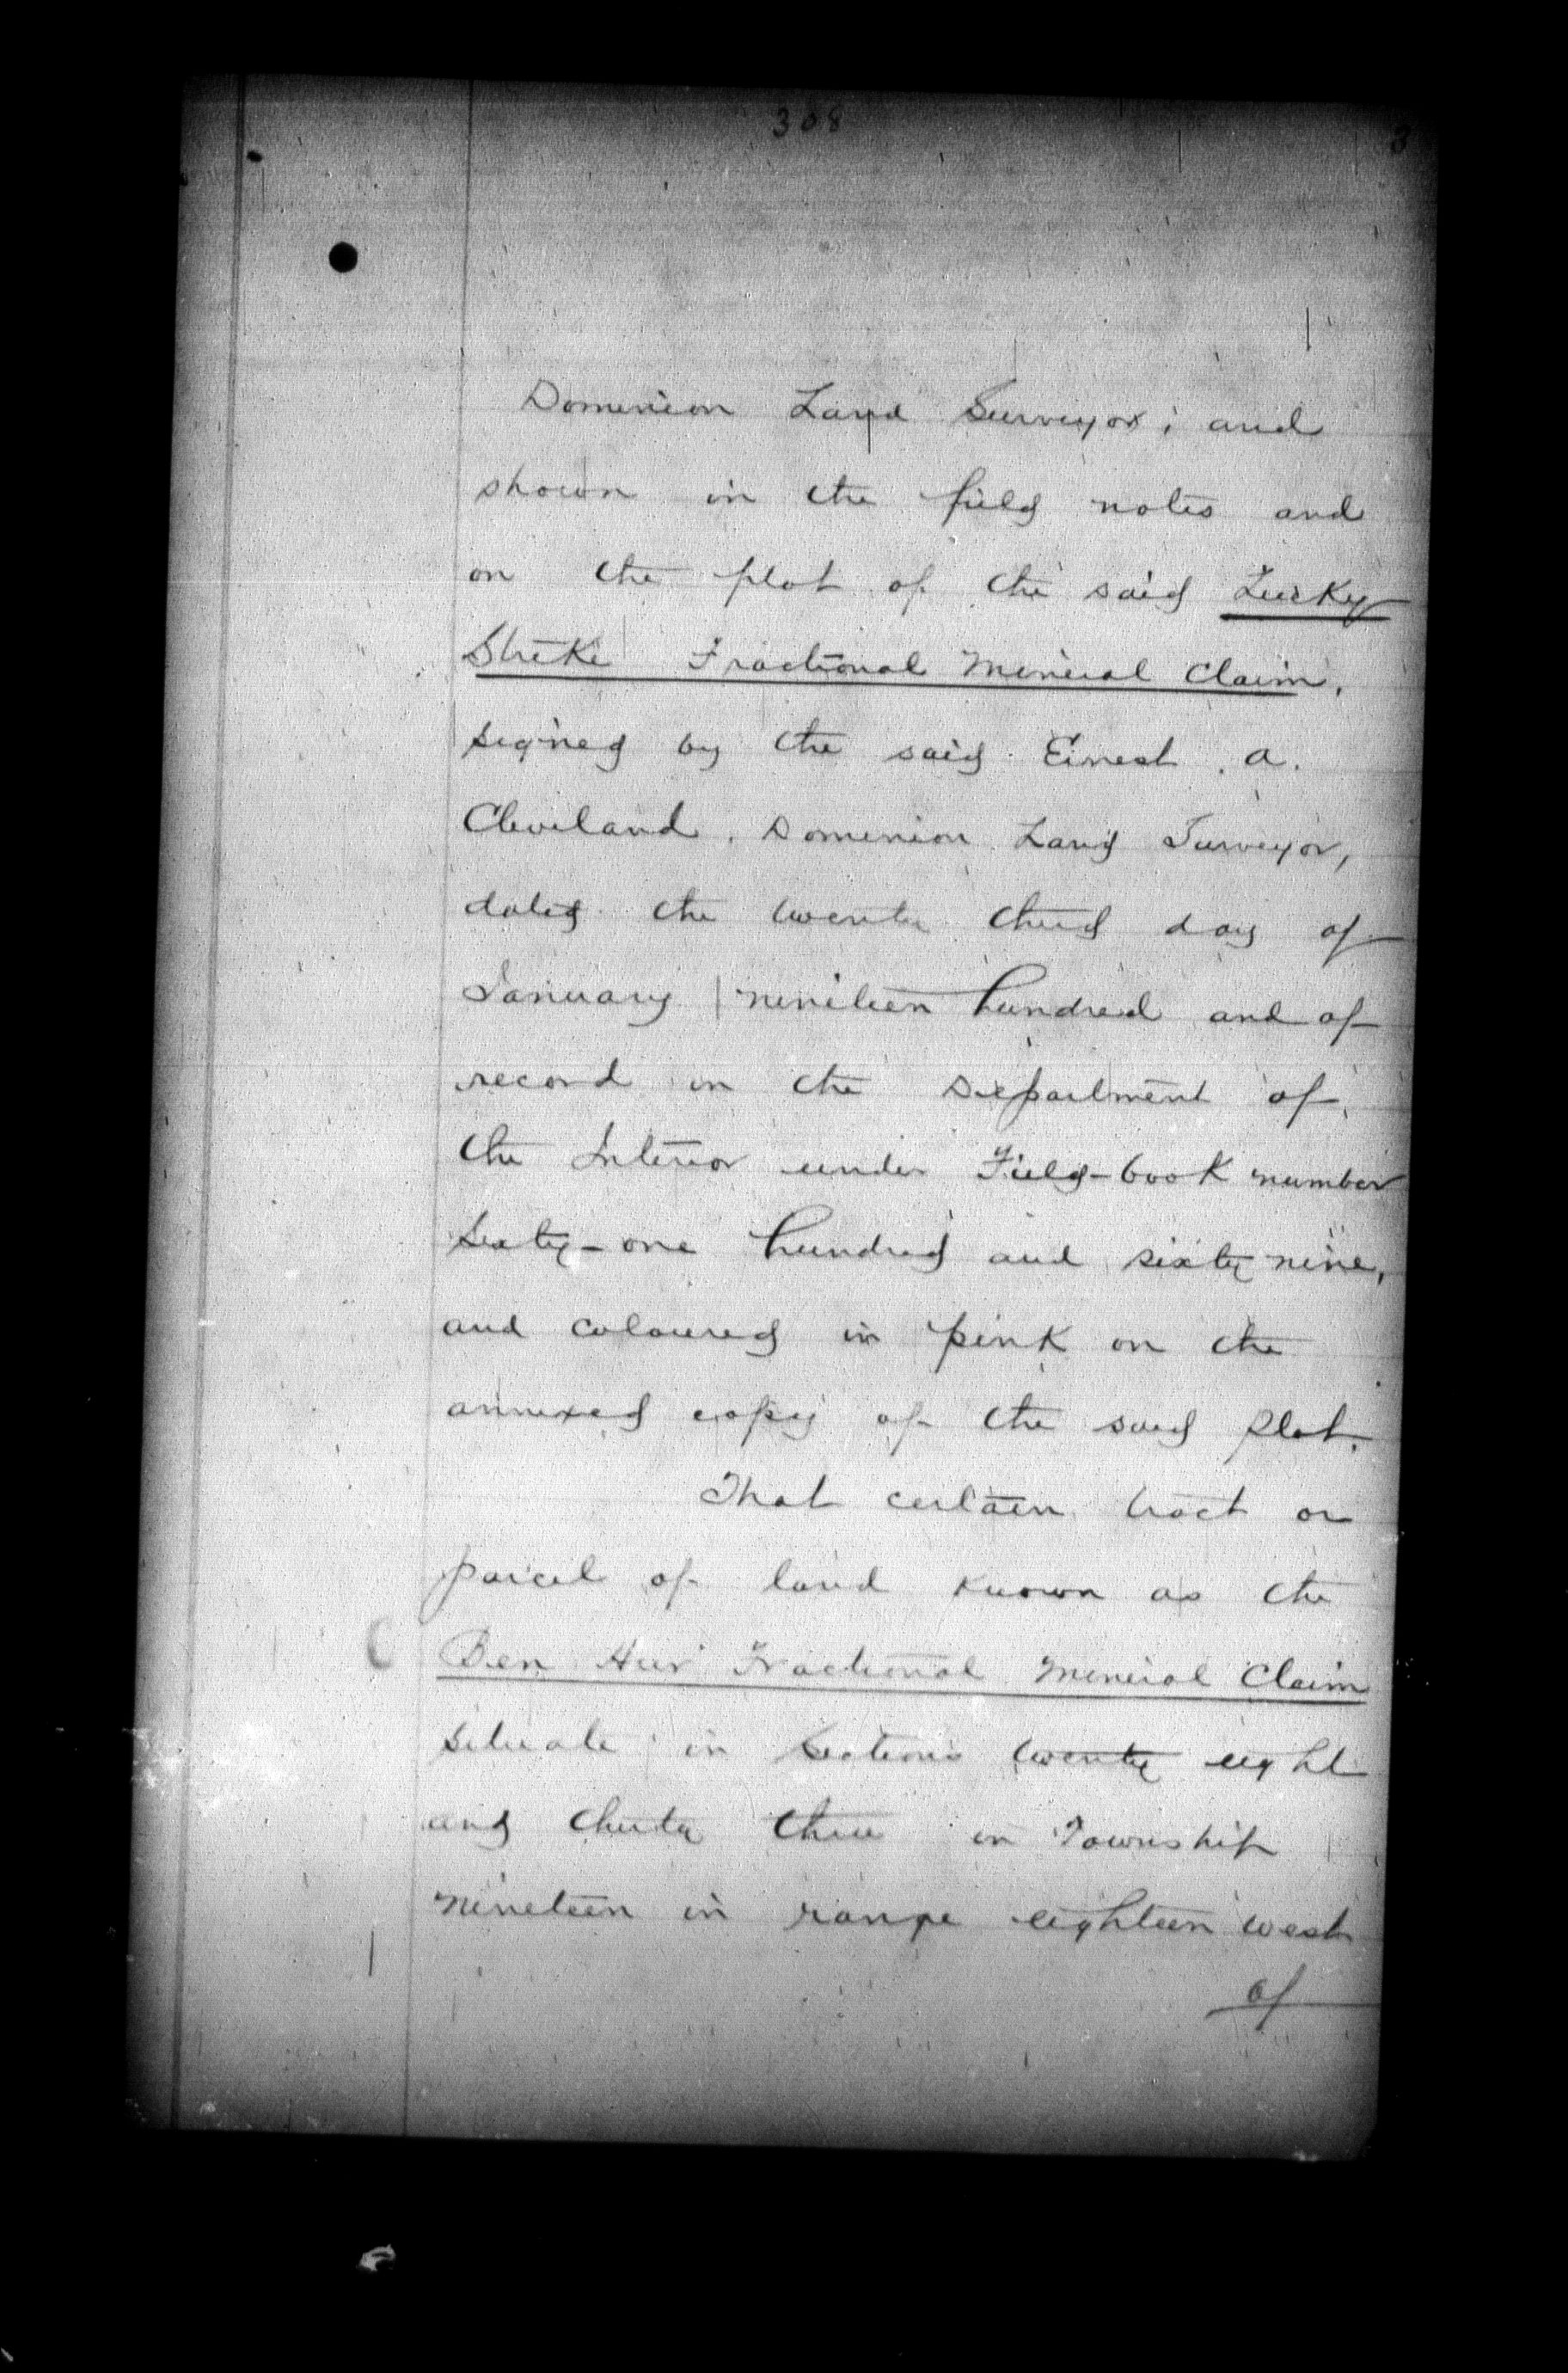 308
3
Dominion Land Surveyor; and
shown in the field notes and
on the plot of the said Lucky
Strike Fractional Mineral Claim,
signed by the said Ernest. A.
Cleveland, Dominion Land Surveyor,
dated the twenty third day of
January nineteen hundred and of
record in the Department of
the Interior under Field-book number
sixty-one hundred and sixty nine,
and coloured in pink on the
annexed copy of the said plot.
That certain tract or
parcel of land known as the
Ben Hur Fractional Mineral Claim
situate in sections twenty eight
and thirty three in Township
nineteen in range eighteen west
of